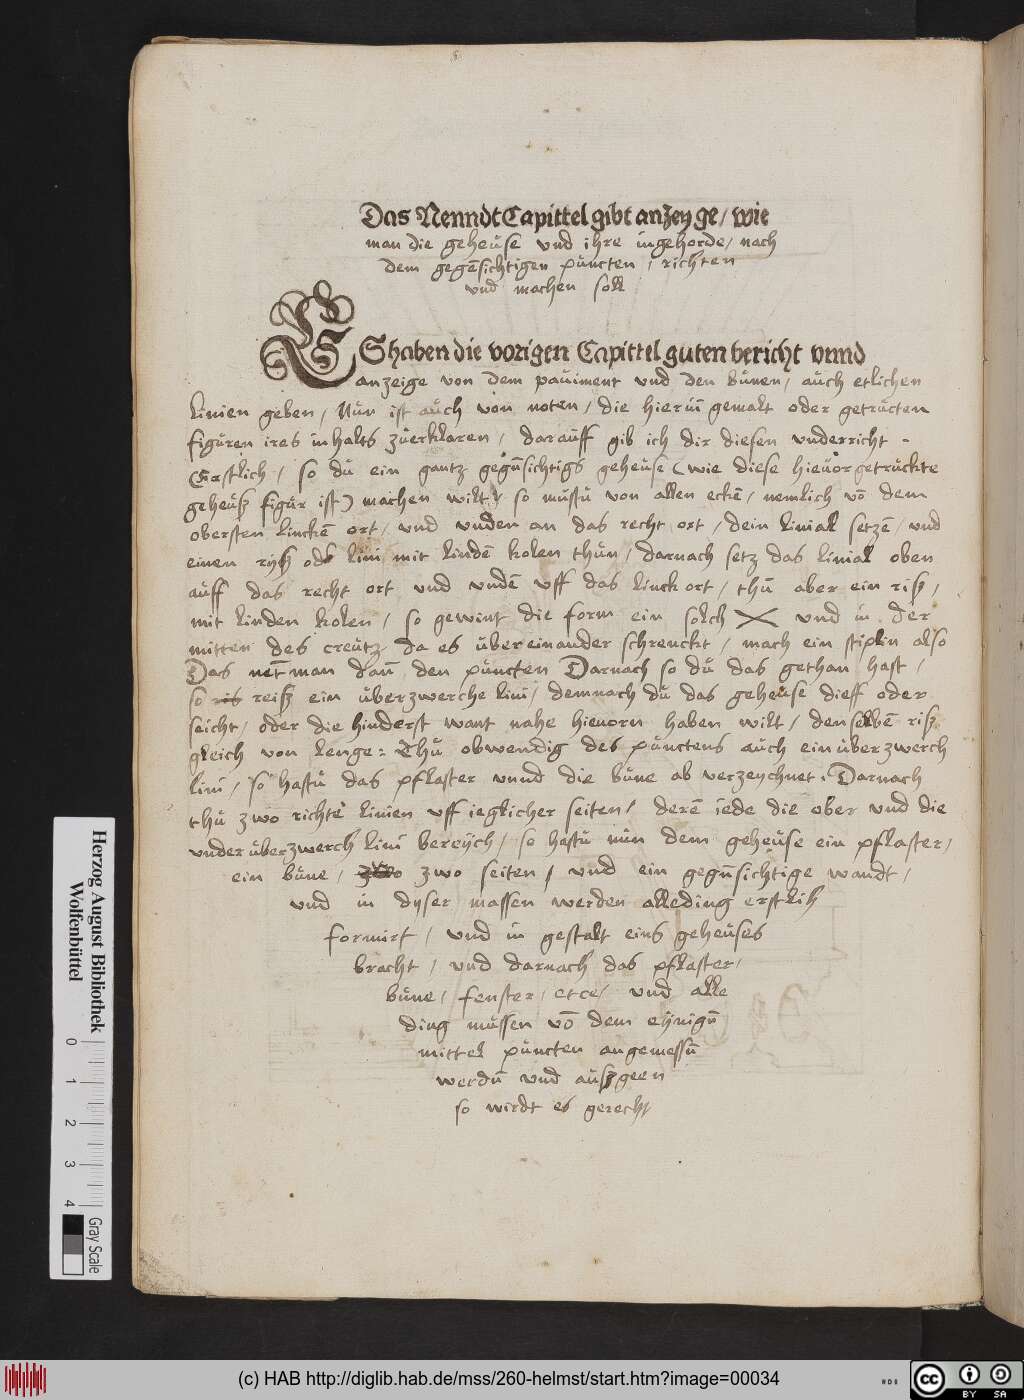 Das Nenndt Capittel gibt anzeyge / wie
man die geheüse vnd ihre ingehorde / nach
dem gegēsichtigen püncten / richten
vnd machen soll
ES haben die vorigen Capittel guten bericht vnnd
anzeige von dem paüiment vnd den bünen / aüch etlichen
linien geben / Nün ist aüch von noten / die hierin̄ gemalt oder getrücten
figüren ires inhalts züerklaren / daraüff gib ich dir diesen vnderricht -
Erstlich / so dü ein gantz gegn̄sichtigs geheüse (wie diese hieüor getrückte
geheüß figür ist) machen wilt / so müstü von allen eckē / nemlich vō dem
obersten linckē ort / vnd vnden an das recht ort / dein linial setzē / vnd
einen ryß od lini mit lindē kolen thün / darnach setz das linial oben
aüff das recht ort vnd vndē vff das linck ort / thü aber ein riß /
mit linden kolen / so gewint die form ein solch X vnd in der
mitten des creütz da es übereinander schrenckt / mach ein stiplin also
Das net man dan̄ den püncten Darnach so dü das gethan hast /
so reiß ein überzwerche lini / demnach dü das geheüse dieff oder
seicht / oder die hinderst want nahe hieuorn haben wilt / denselbē riß
gleich von lenge : Thü obwendig des pünctens aüch ein überzwerch
lini / so hastü das pflaster vnnd die büne ab verzeychnet. Darnach
thü zwo richte linien vff ieglicher seiten / derē iede die ober vnd die
vnder überzwerch lini bereych / so hastü nün dem geheüse ein pflaster /
ein büne / zwo seiten / vnd ein gegn̄sichtige wandt /
vnd in dyser massen werden alleding erstlih
formirt / vnd in gestalt eins geheüses
bracht / vnd darnach das pflaster /
büne / fenster / etce / vnd alle
ding müssen vō dem eynign̄
mittel püncten angemessn̄
werdn̄ vnd aüßgeen
so wirdt es gerecht
Herzog August Bibliothek
Wolfenbüttel
0 1 2 3 4
Gray Scale
(c) HAB http://diglib.hab.de/mss/260-helmst/start.htm?image=00034
cc BY SA